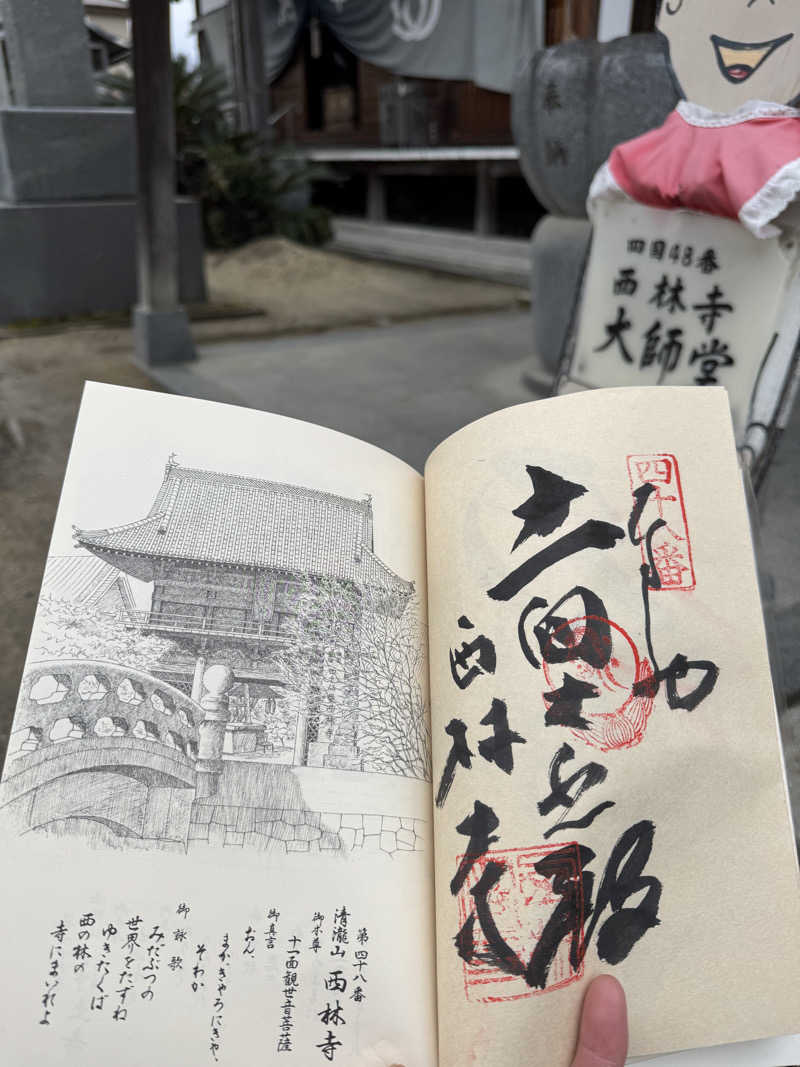 奉納
四国48番
西林寺
大師堂
第四十八番
清瀧山 西林寺
御本尊
十一面観世音菩薩
御真言
おん、
まか、きゃろにきゃ、
そわか
御詠歌
みだぶつの
世界をたずね
ゆきたくば
西の林の
寺にまいれよ
四十八番
西林寺